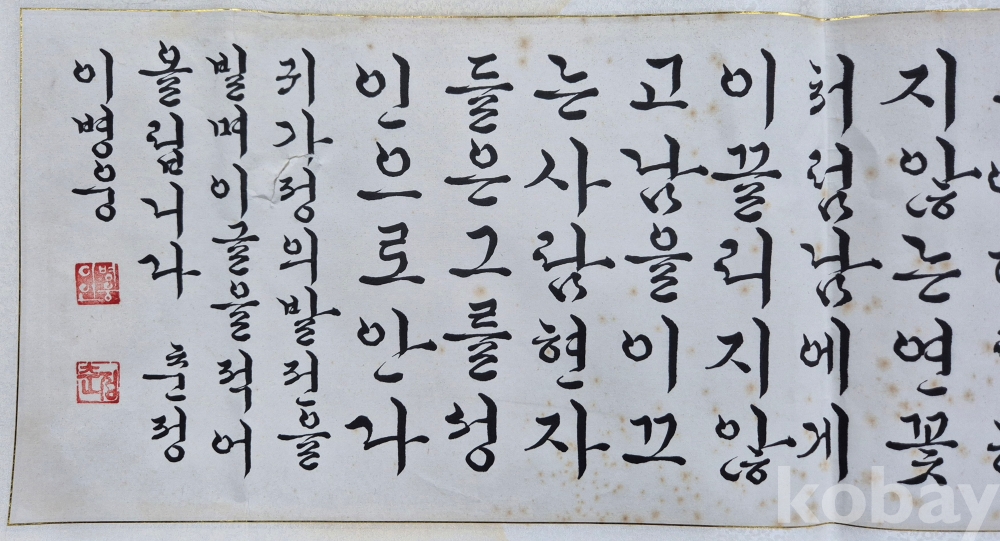 지않는연꽃
처럼남에게
이끌리지않
고남을이끄
는사람현자
들은그를성
인으로안다
귀가정의발전을
빌며이글을적어
올립니다 춘정
이병웅
춘정
kobay